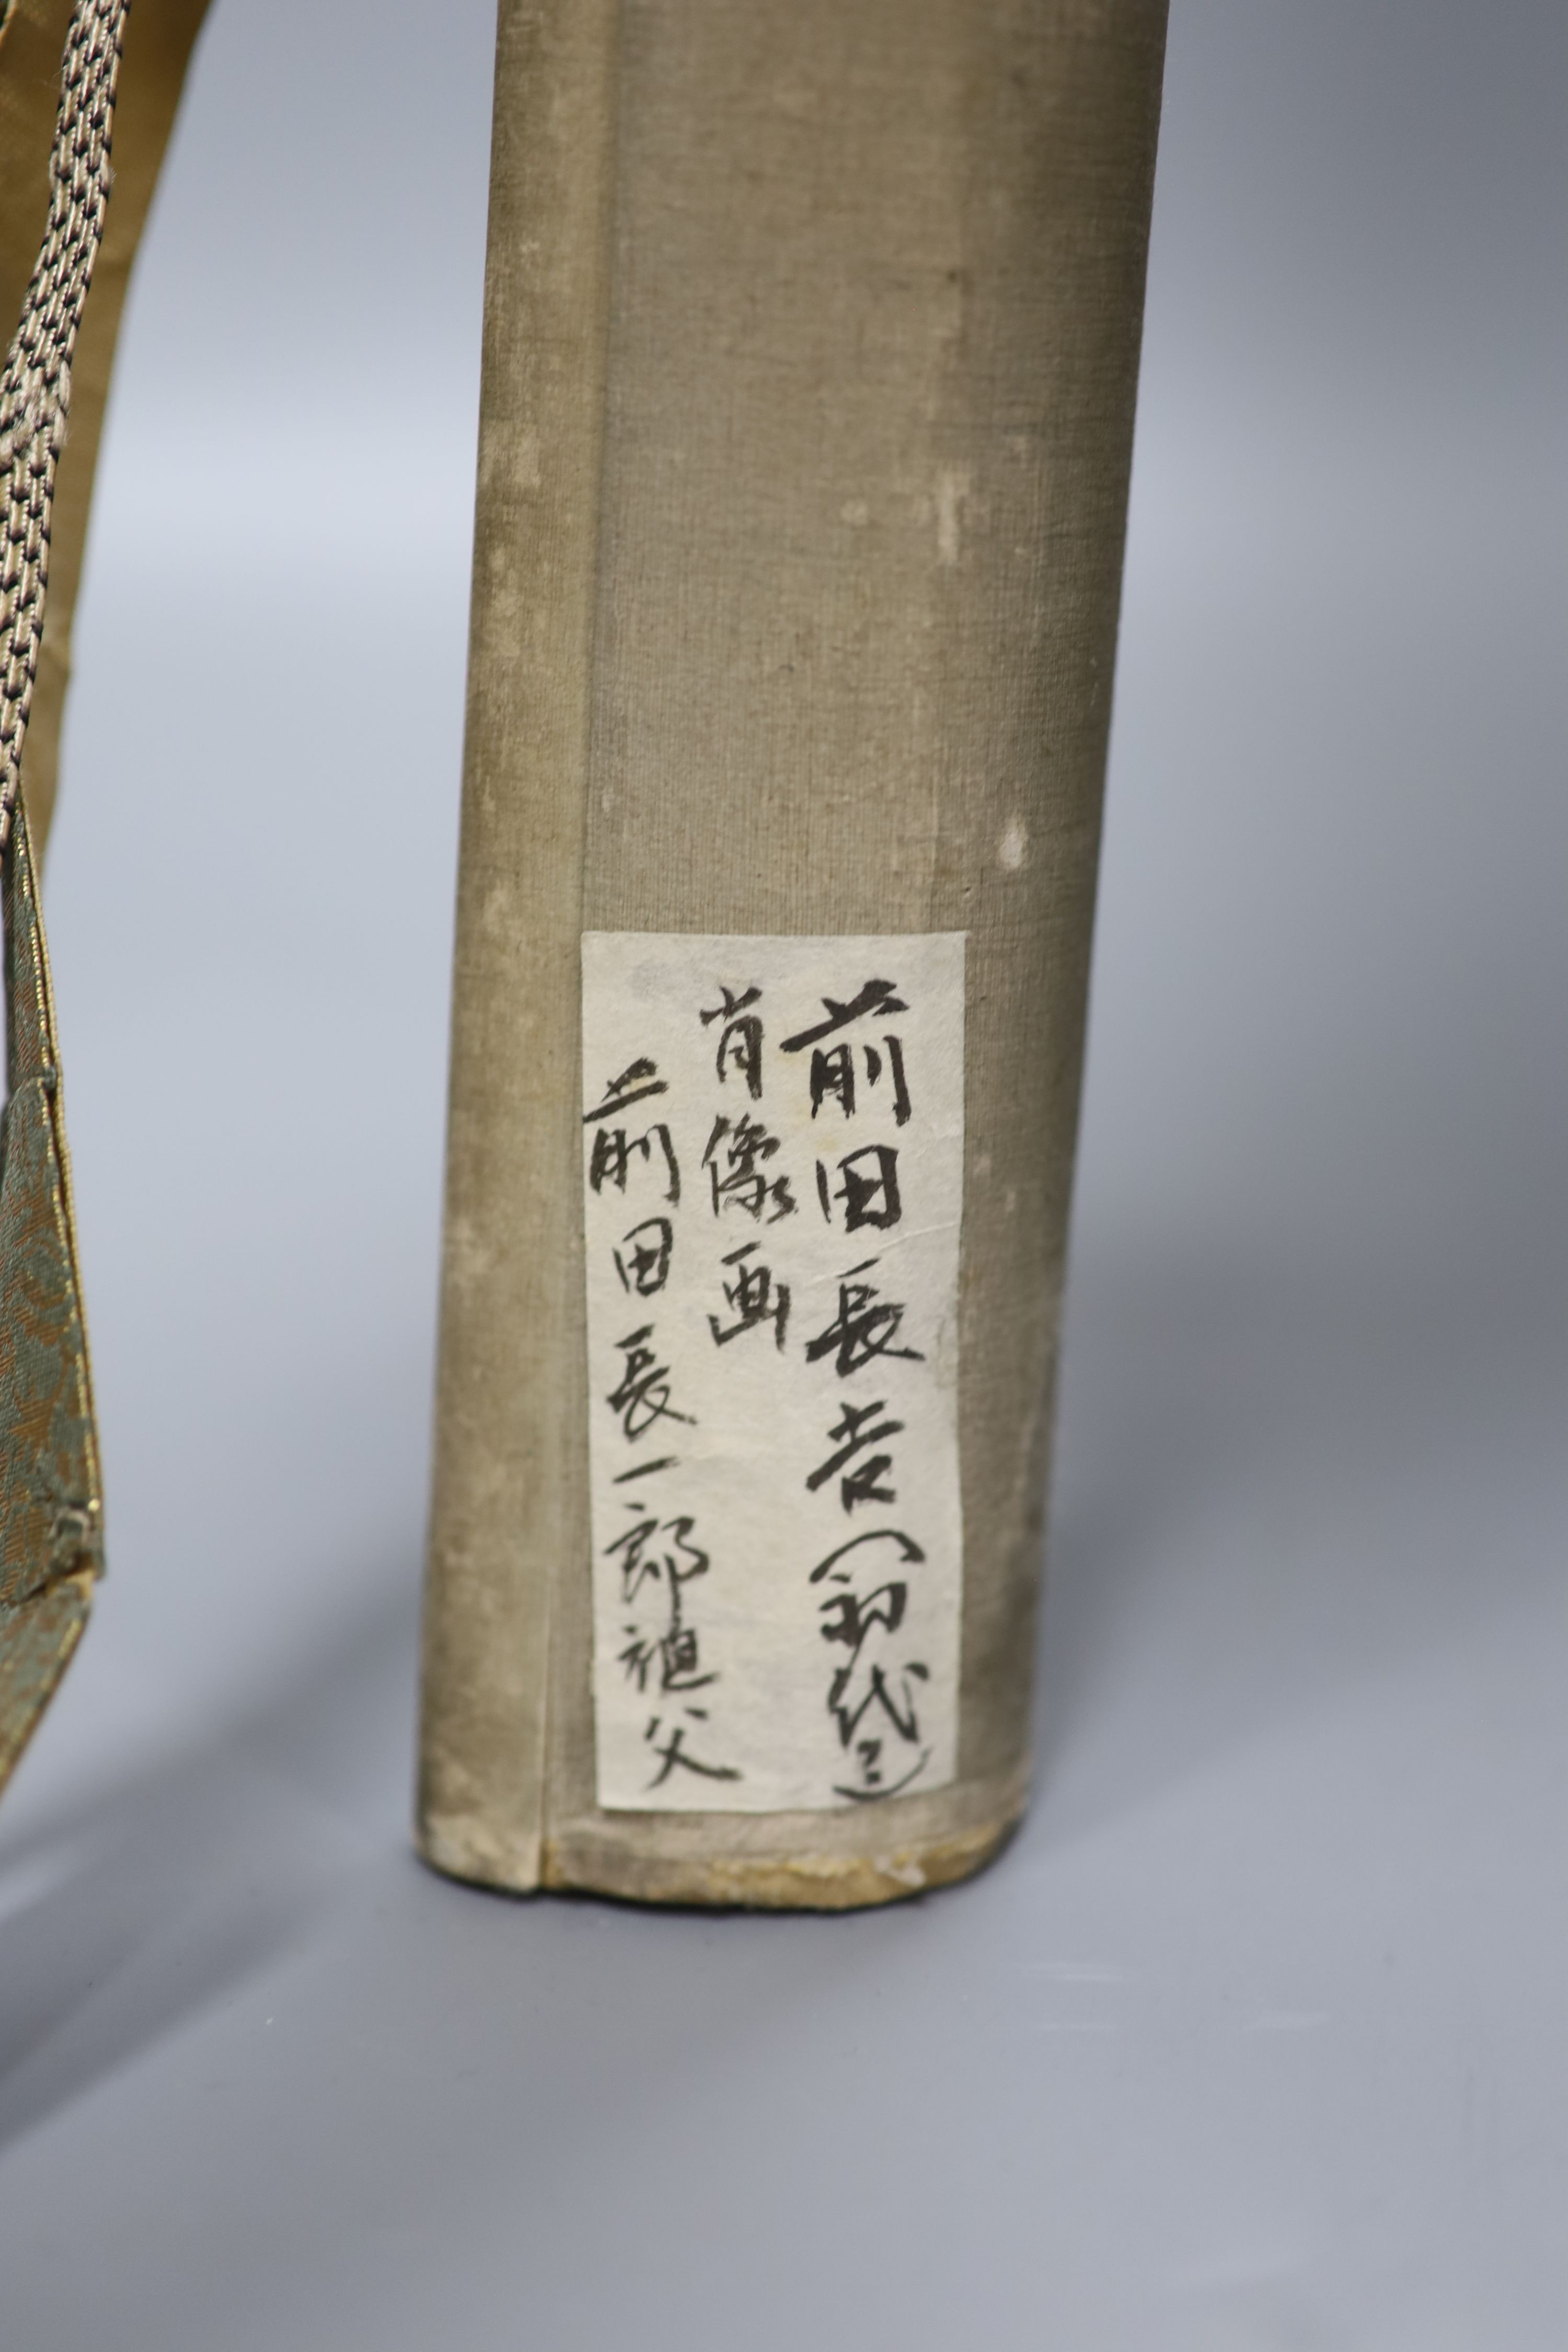 前田長吉(初代)
肖像画
前田長一郎祖父